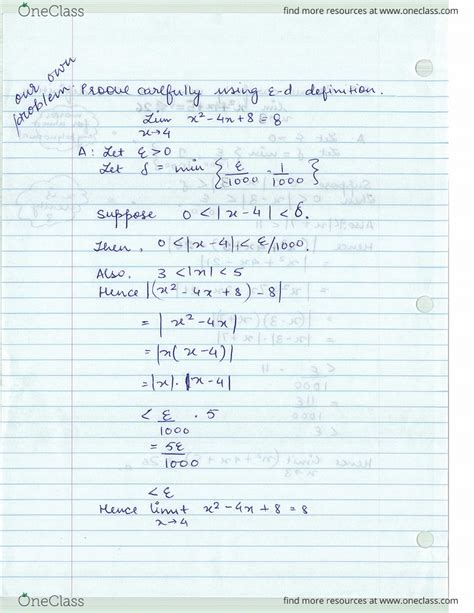 OneClass
find more resources at www.oneclass.com
our own
problem
Proove carefully using ε-d definition.
Lim x²-4x+8=8
x→4
A: Let ε>0
Let δ = min {ε/1000 . 1/1000}
Suppose 0<|x-4|<δ.
Then, 0<|x-4|<ε/1000.
Also, 3<|x|<5
Hence |(x²-4x+8)-8|
= |x²-4x|
= |x(x-4)|
= |x|.|x-4|
< ε/1000 . 5
= 5ε/1000
<ε
Hence limit x²-4x+8=8
x→4
OneClass
find more resources at www.oneclass.com